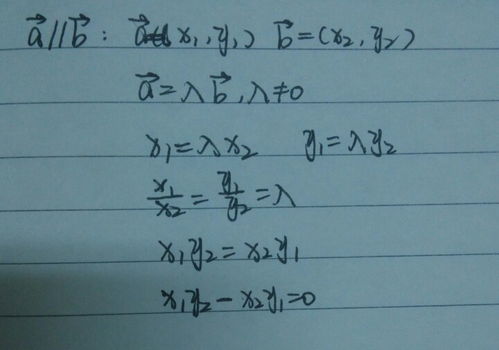 a⃗ // b⃗ : a⃗ (x₁, y₁) b⃗ = (x₂, y₂)
a⃗ = λb⃗, λ≠0
x₁ = λx₂ y₁ = λy₂
x₁/x₂ = y₁/y₂ = λ
x₁y₂ = x₂y₁
x₁y₂ − x₂y₁ = 0